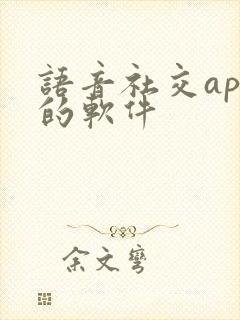 語音社交ap
的軟件
余文彎